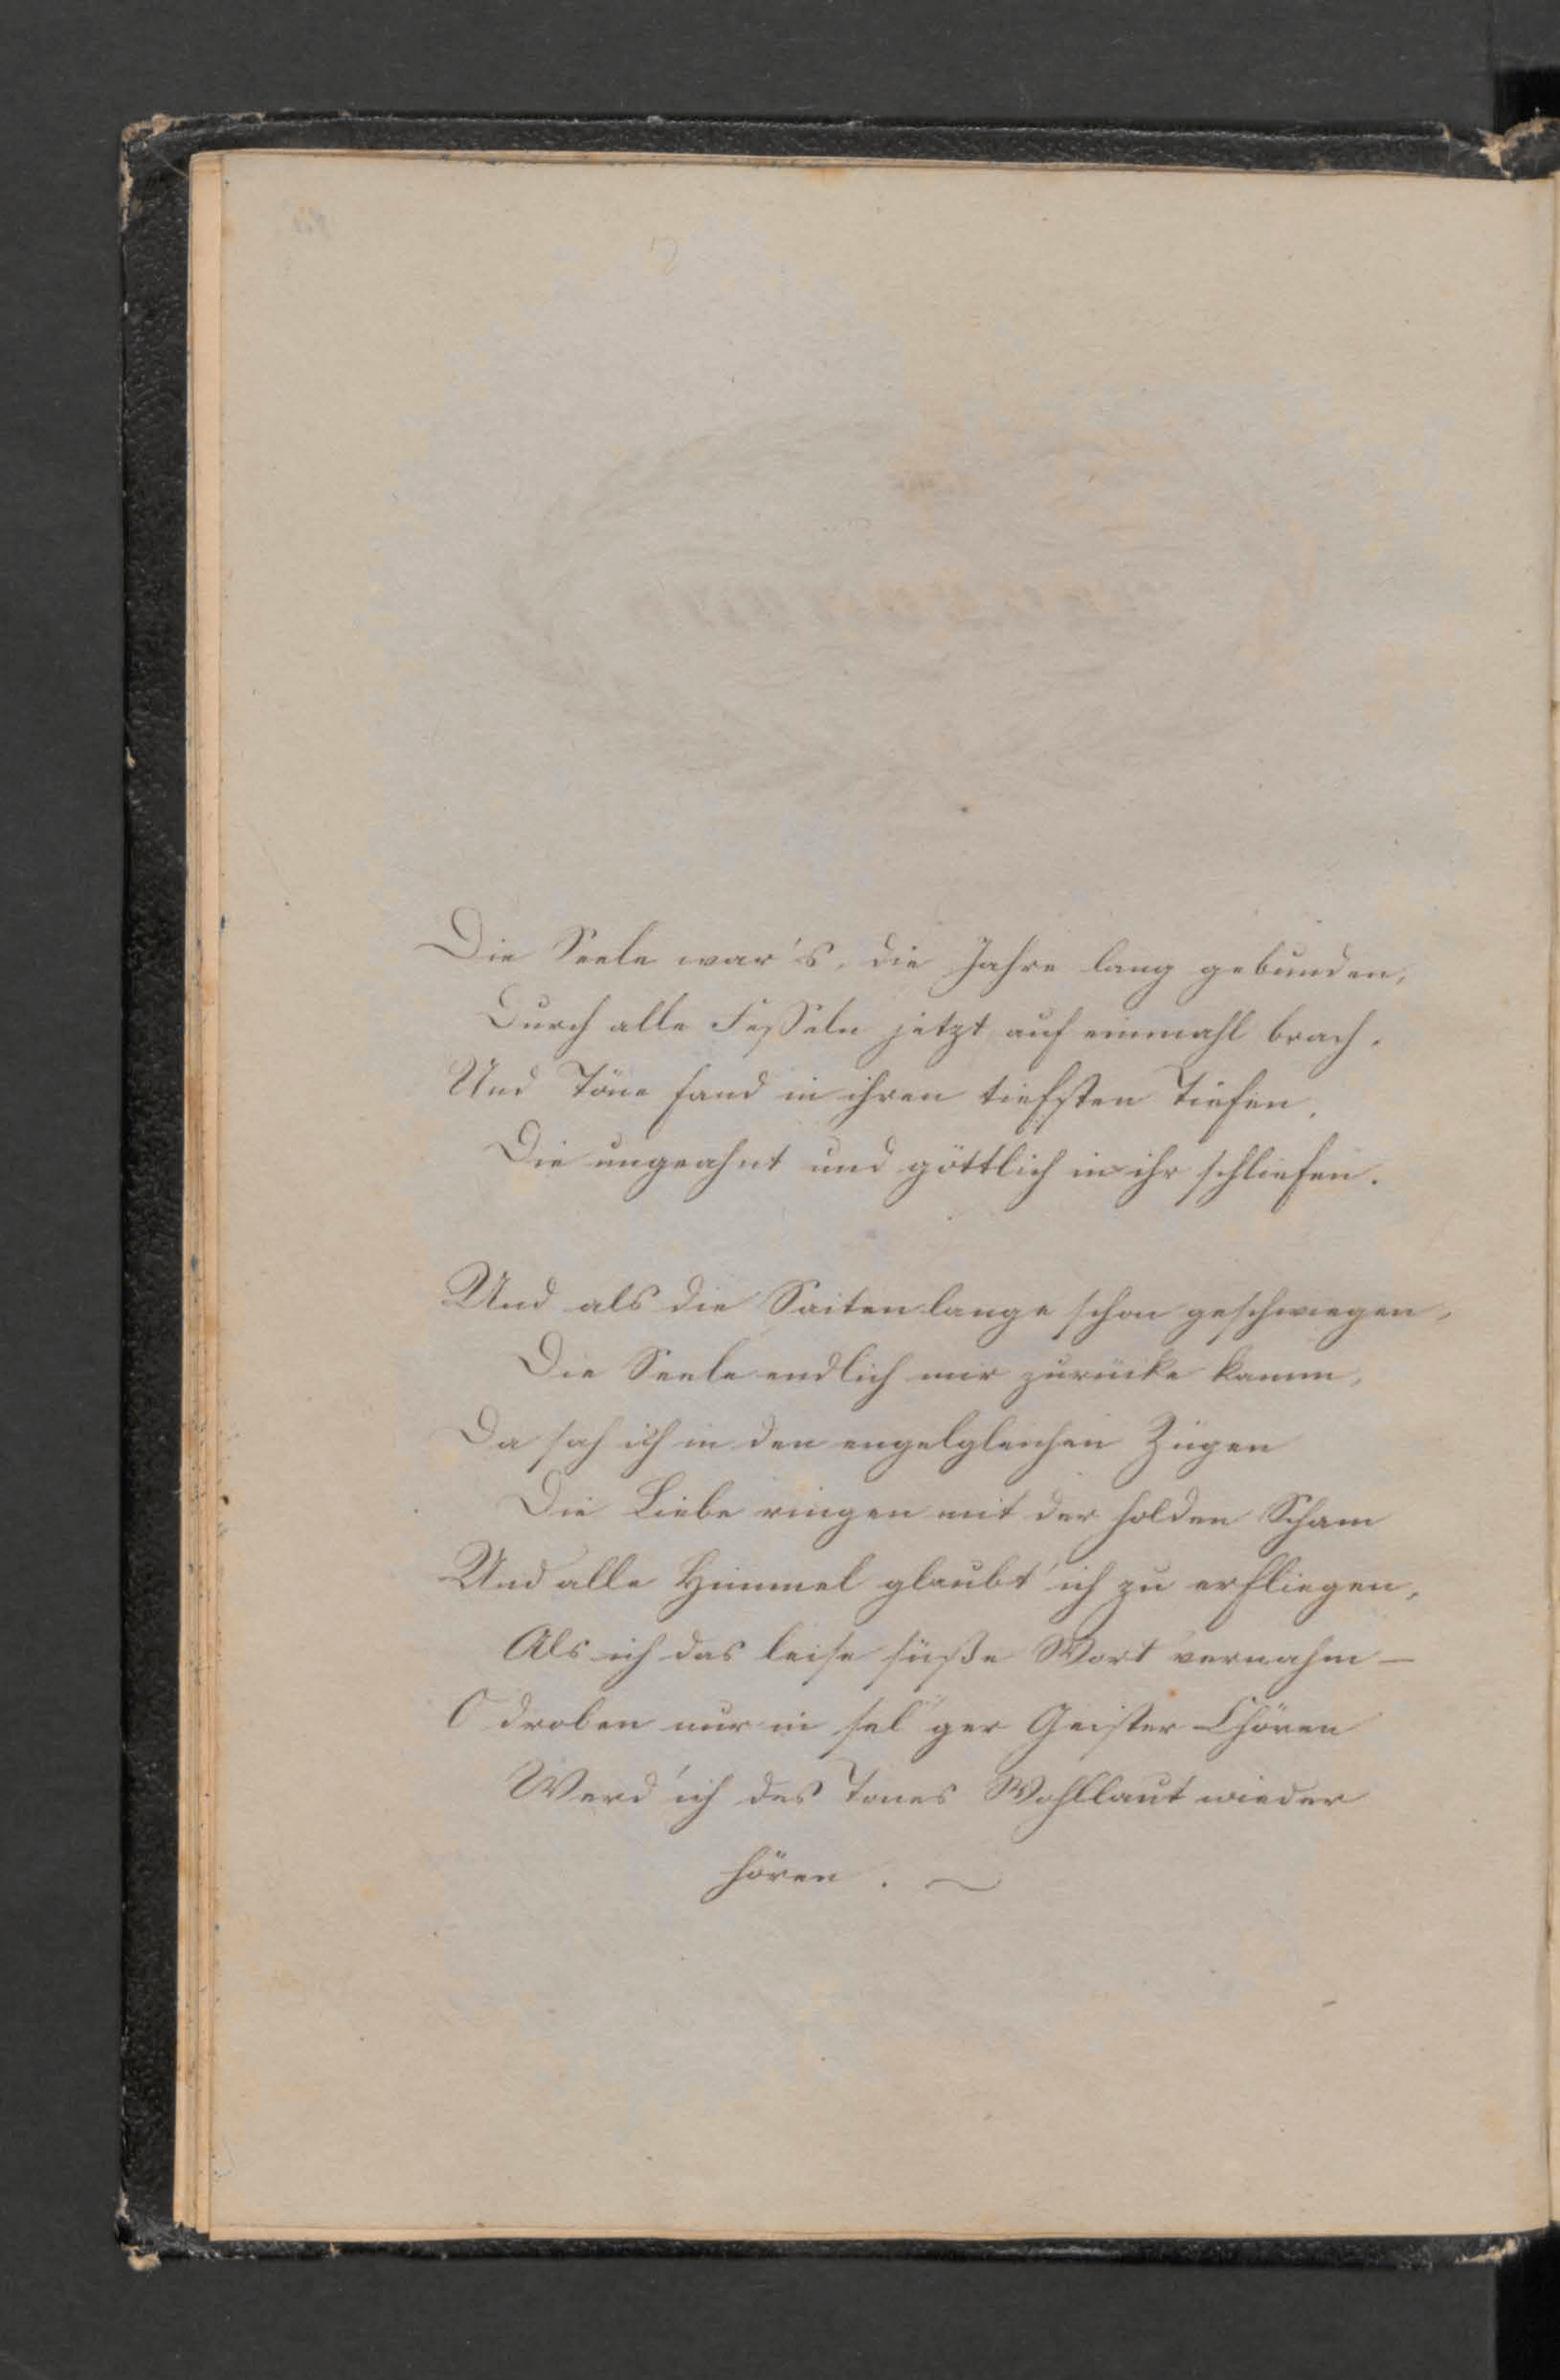 Die Seele war's, die Jahre lang gebunden,
Durch alle Fesseln jetzt auf einmahl brach.
Und Töne fand in ihren tiefsten Tiefen,
Die ungeahnt und göttlich in ihr schliefen.
Und als die Saiten lange schon geschwiegen,
Die Seele endlich mir zurücke kamm,
Da sah ich in den engelgleichen Zügen
Die Liebe ringen mit der holden Scham
Und alle Himmel glaubt' ich zu erfliegen,
Als ich das leise süße Wort vernahm —
O droben nur in sel'ger Geister Chören
Werd' ich des Tones Wohllaut wieder
hören. ~